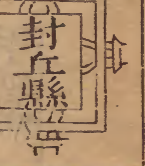 封丘縣